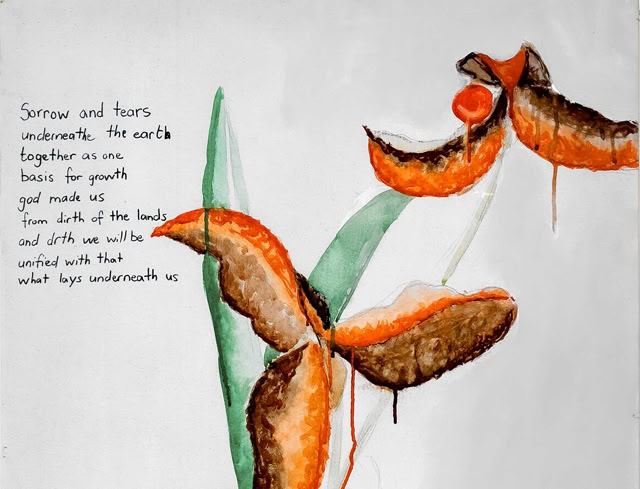 Sorrow and tears
underneathe the earth
together as one
basis for growth
god made us
from dirth of the lands
and drth we will be
unified with that
what lays underneath us